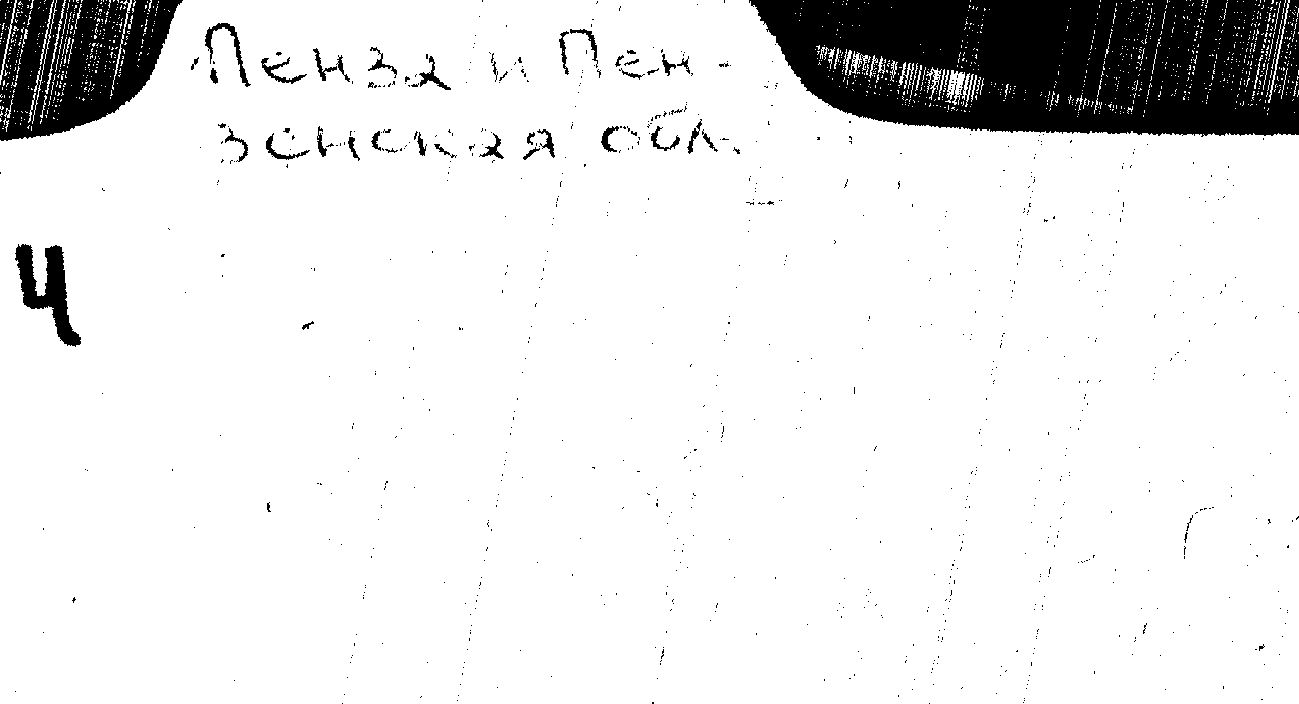 Пенза и Пен-
зенская обл.
4